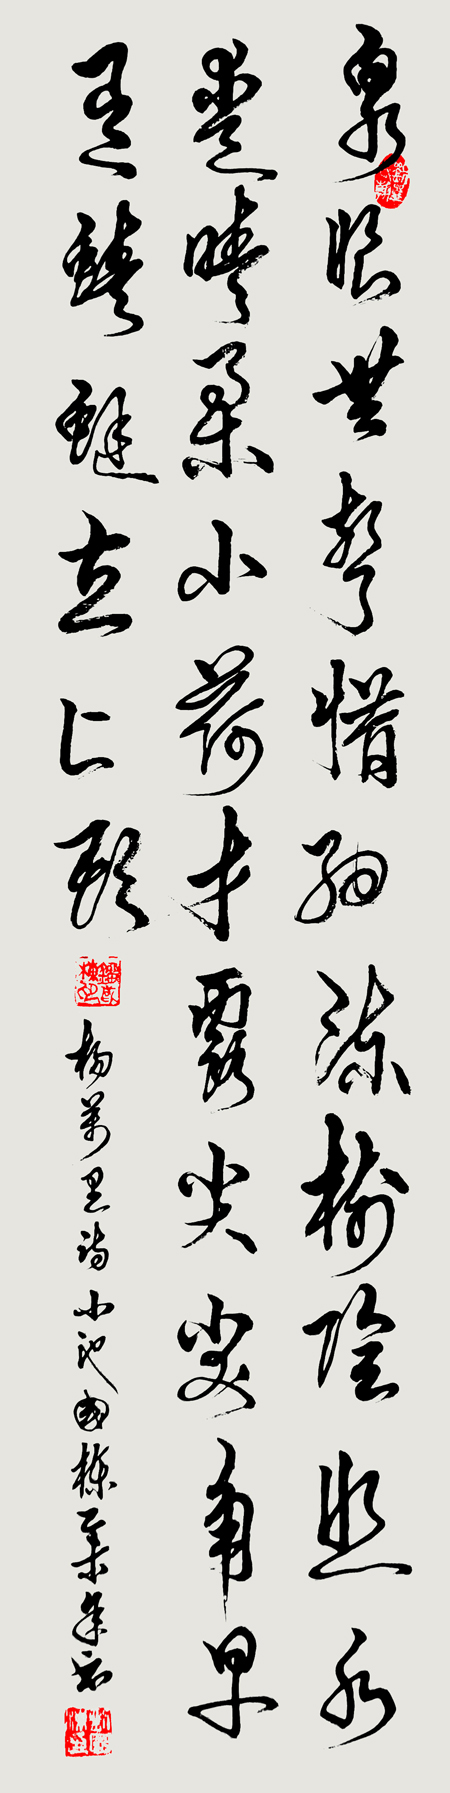 泉眼無聲惜細流樹陰照水
愛晴柔小荷才露尖尖角早
有蜻蜓立上頭
楊萬里詩小池國棟